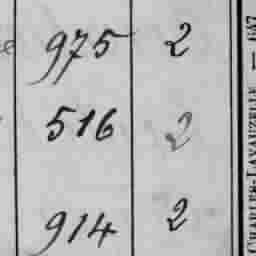 975 2
516 2
914 2
CHARLES-LAVAUZELLE — 1957